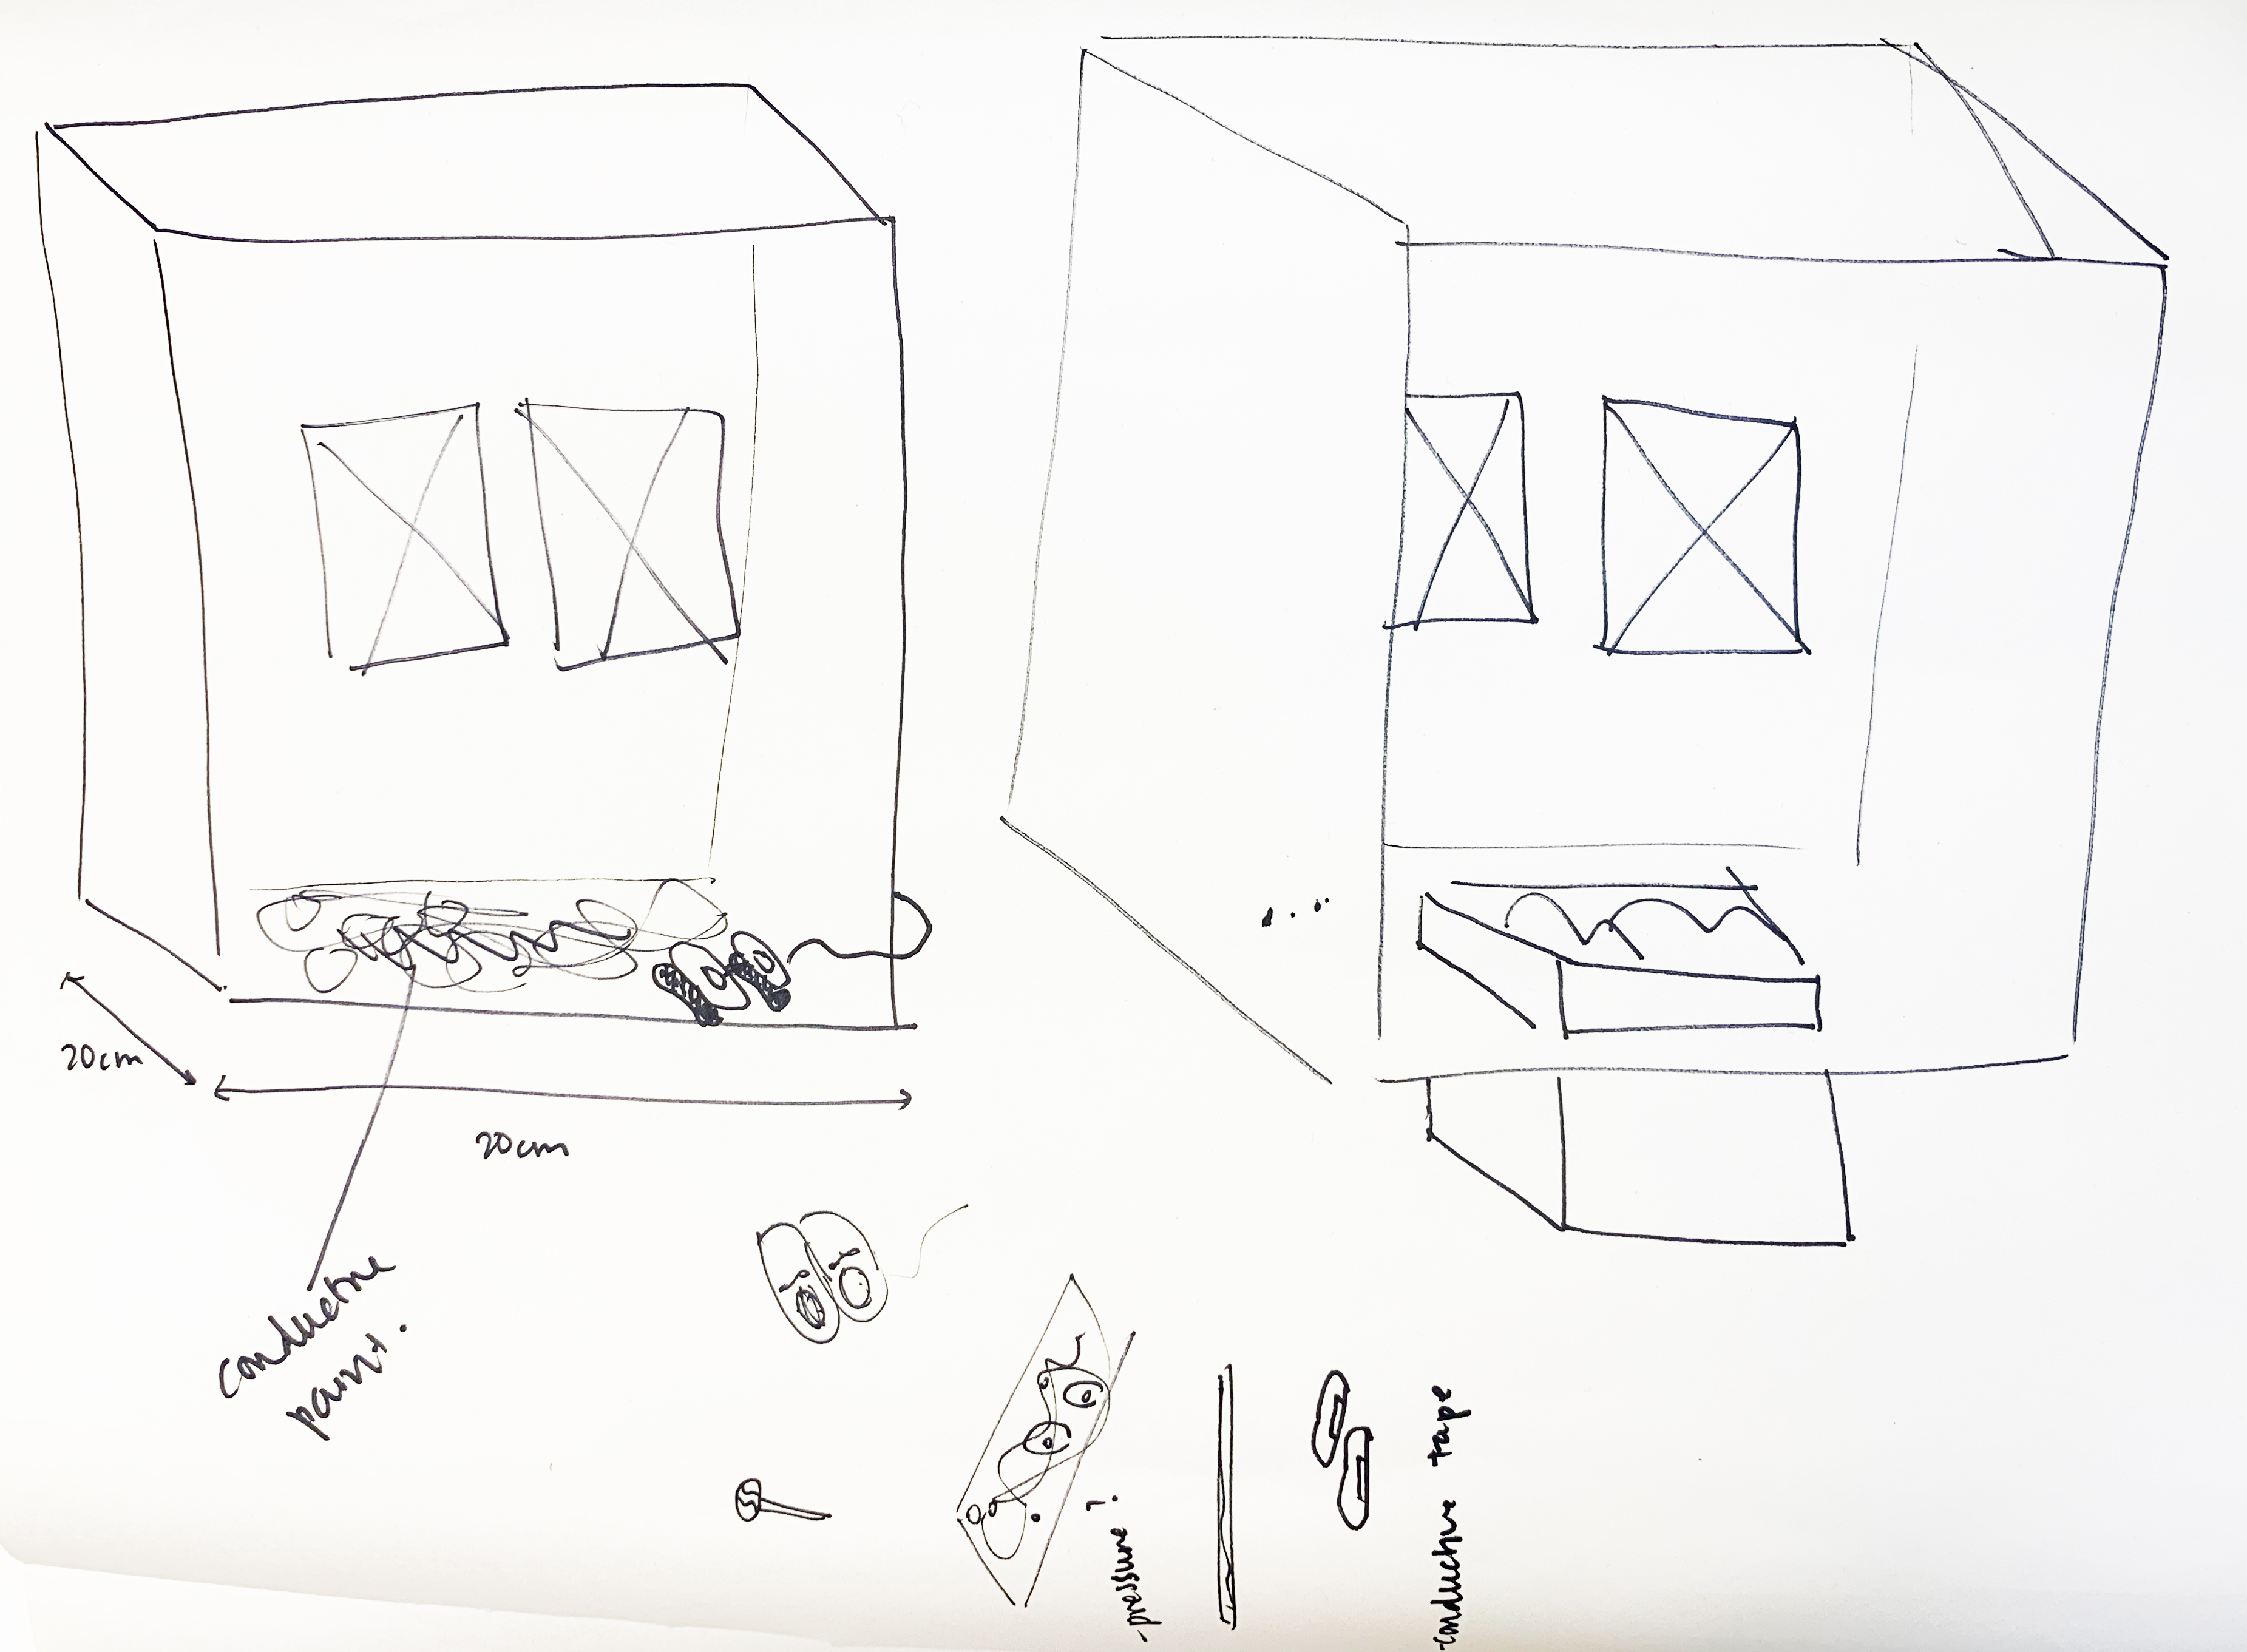 20cm
20cm
conductive
paint.
-pressure ?
-conductive tape